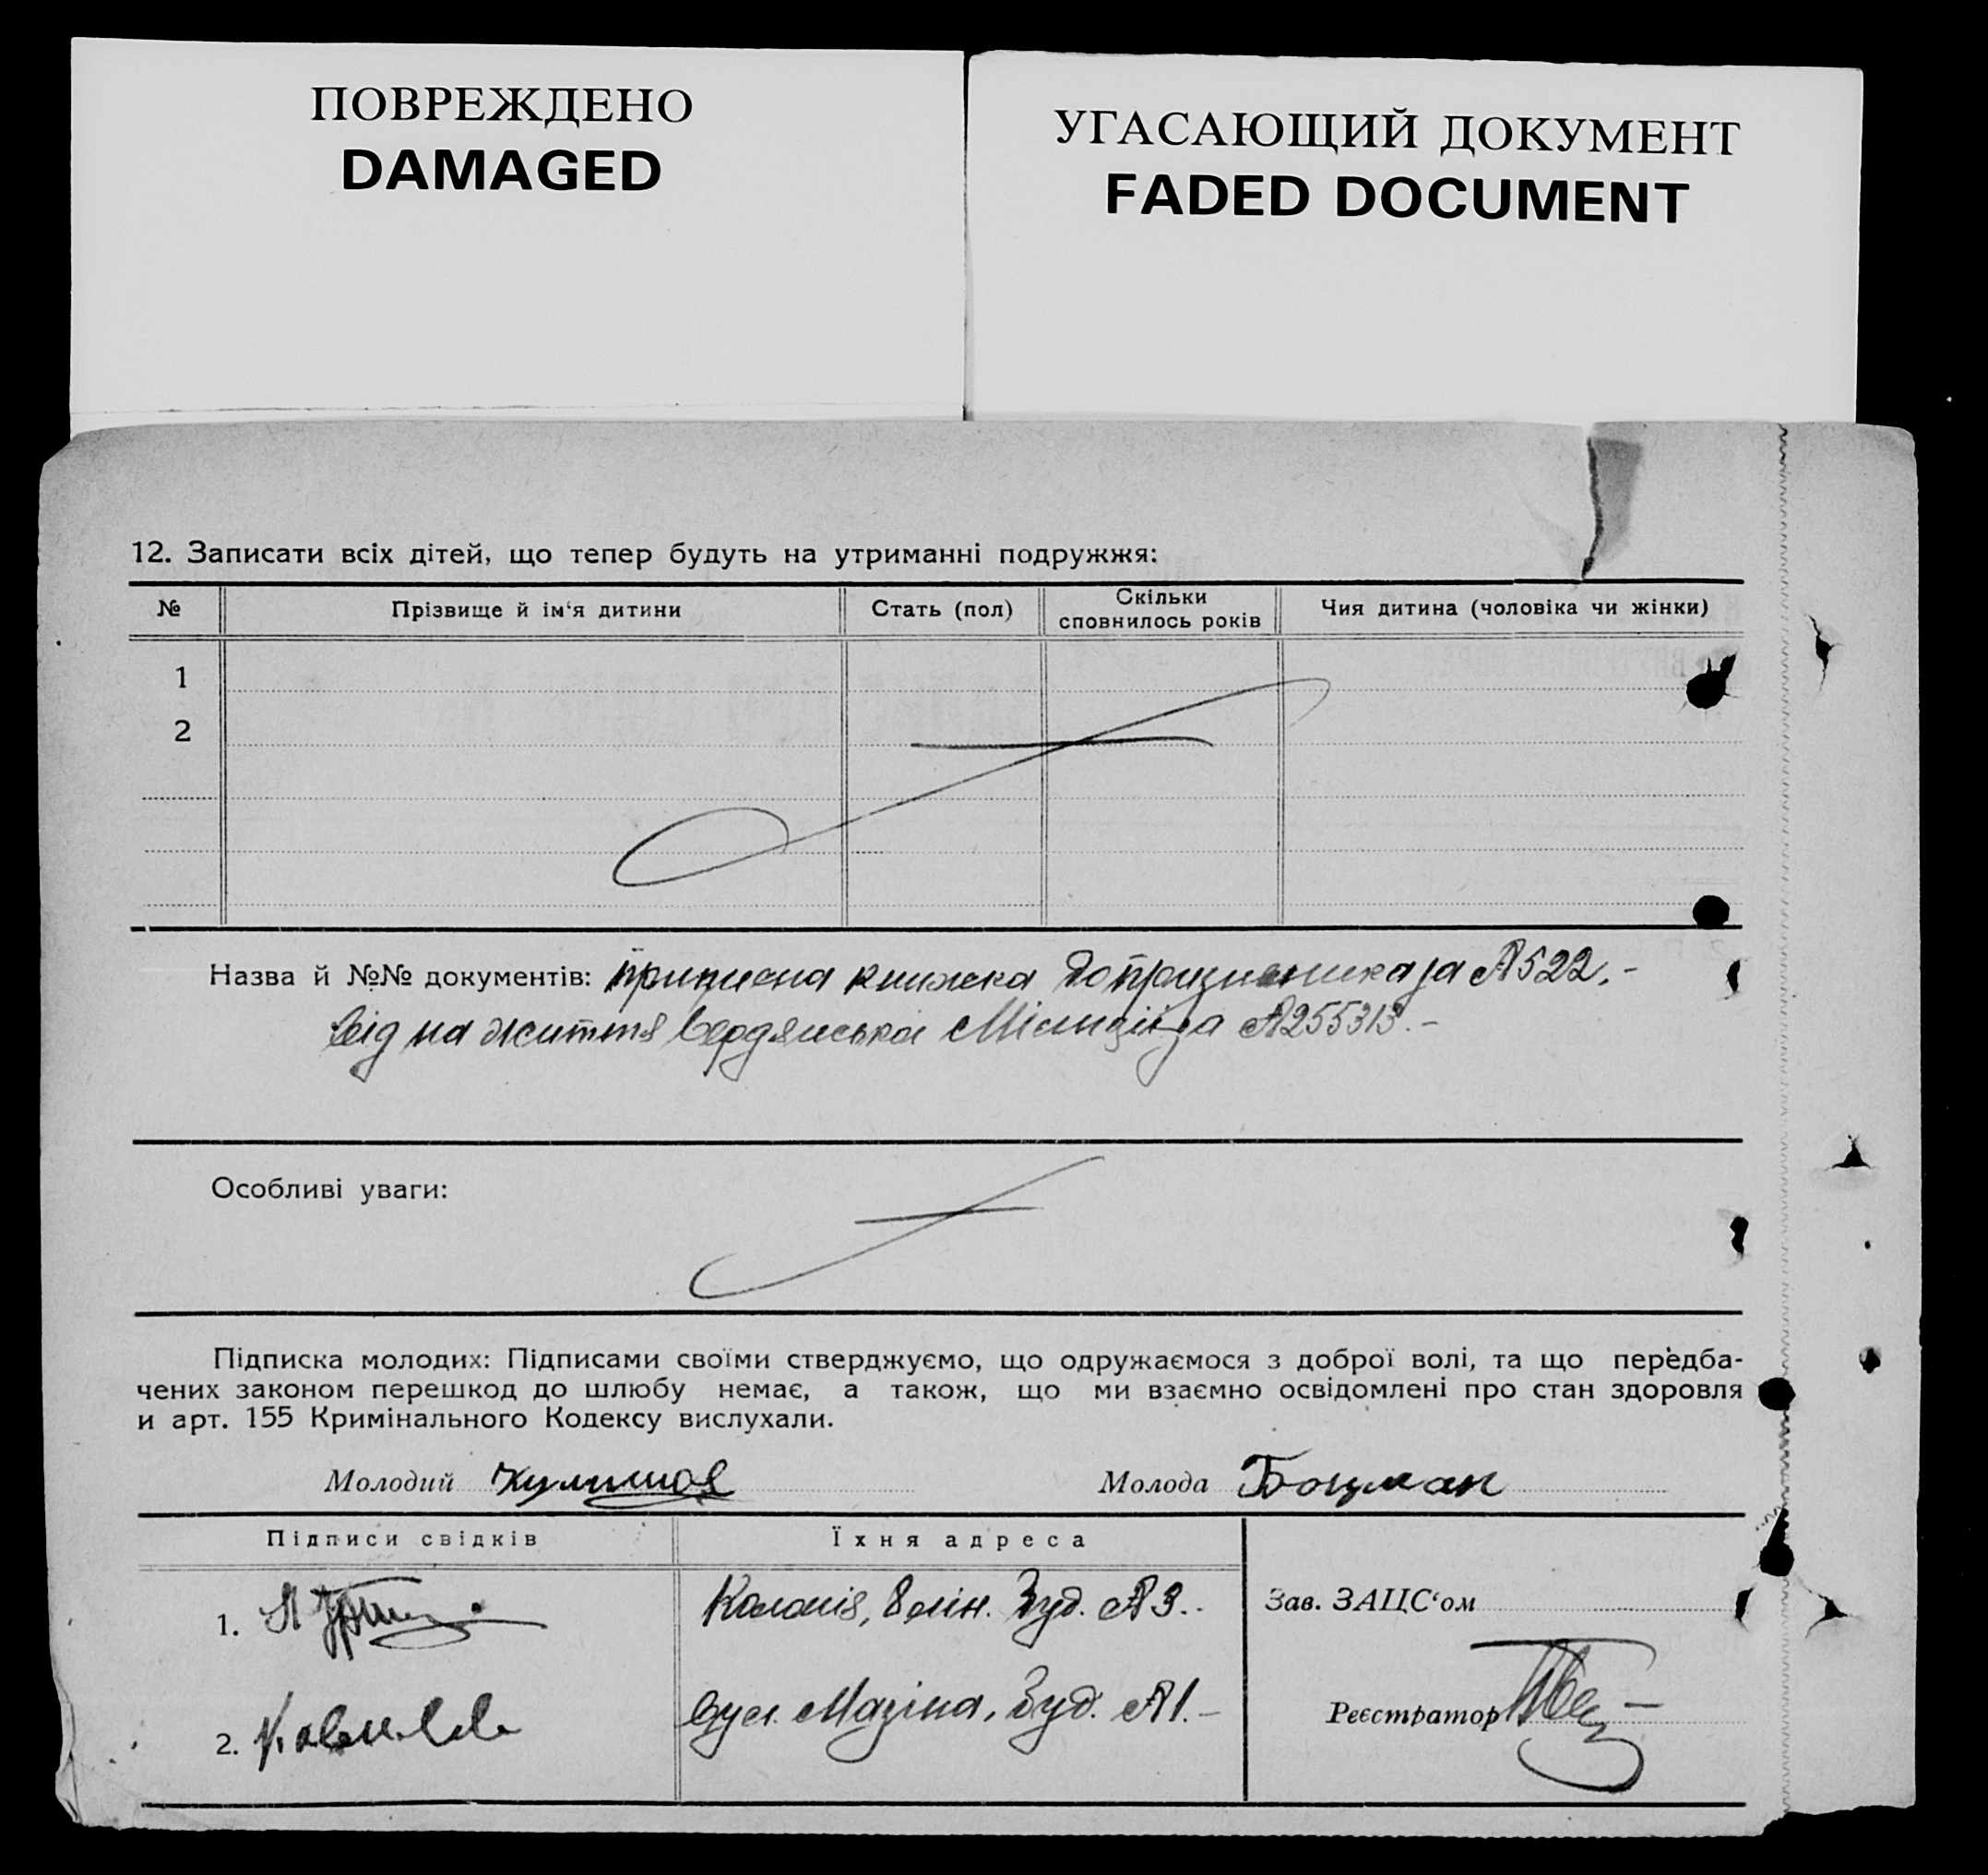 ПОВРЕЖДЕНО
DAMAGED
УГАСАЮЩИЙ ДОКУМЕНТ
FADED DOCUMENT
12. Записати всіх дітей, що тепер будуть на утриманні подружжя:
№ Прізвище й ім‘я дитини Стать (пол) Скільки сповнилось років Чия дитина (чоловіка чи жінки)
1
2
Назва й №№ документів: приписна книжка допризивника за №522.-
від на життя Бердянської Міліції за №255313.-
Особливі уваги:
Підписка молодих: Підписами своїми стверджуємо, що одружаємося з доброї волі, та що передба-
чених законом перешкод до шлюбу немає, а також, що ми взаємно освідомлені про стан здоровля
и арт. 155 Кримінального Кодексу вислухали.
Молодий Молода Боцман
Підписи свідків Їхня адреса
1. Колонія, 8 лін. Буд. №3.
Зав. ЗАЦС‘ом
2. Вул. Мазіна, Буд. №1.-
Реєстратор